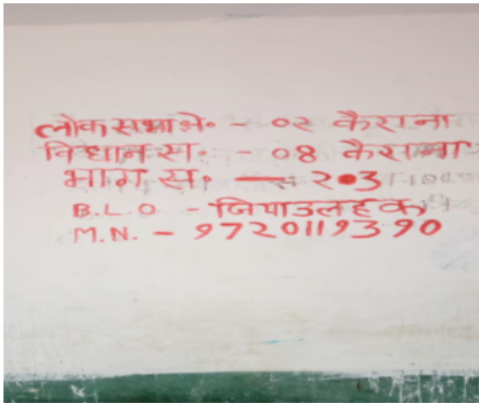 लोकसभा क्षे॰ - ०२ कैराना
विधान स॰ - ०8 कैराना
भाग स॰ - २०3
B.L.O - जियाउलहक
M.N. - 9720119390